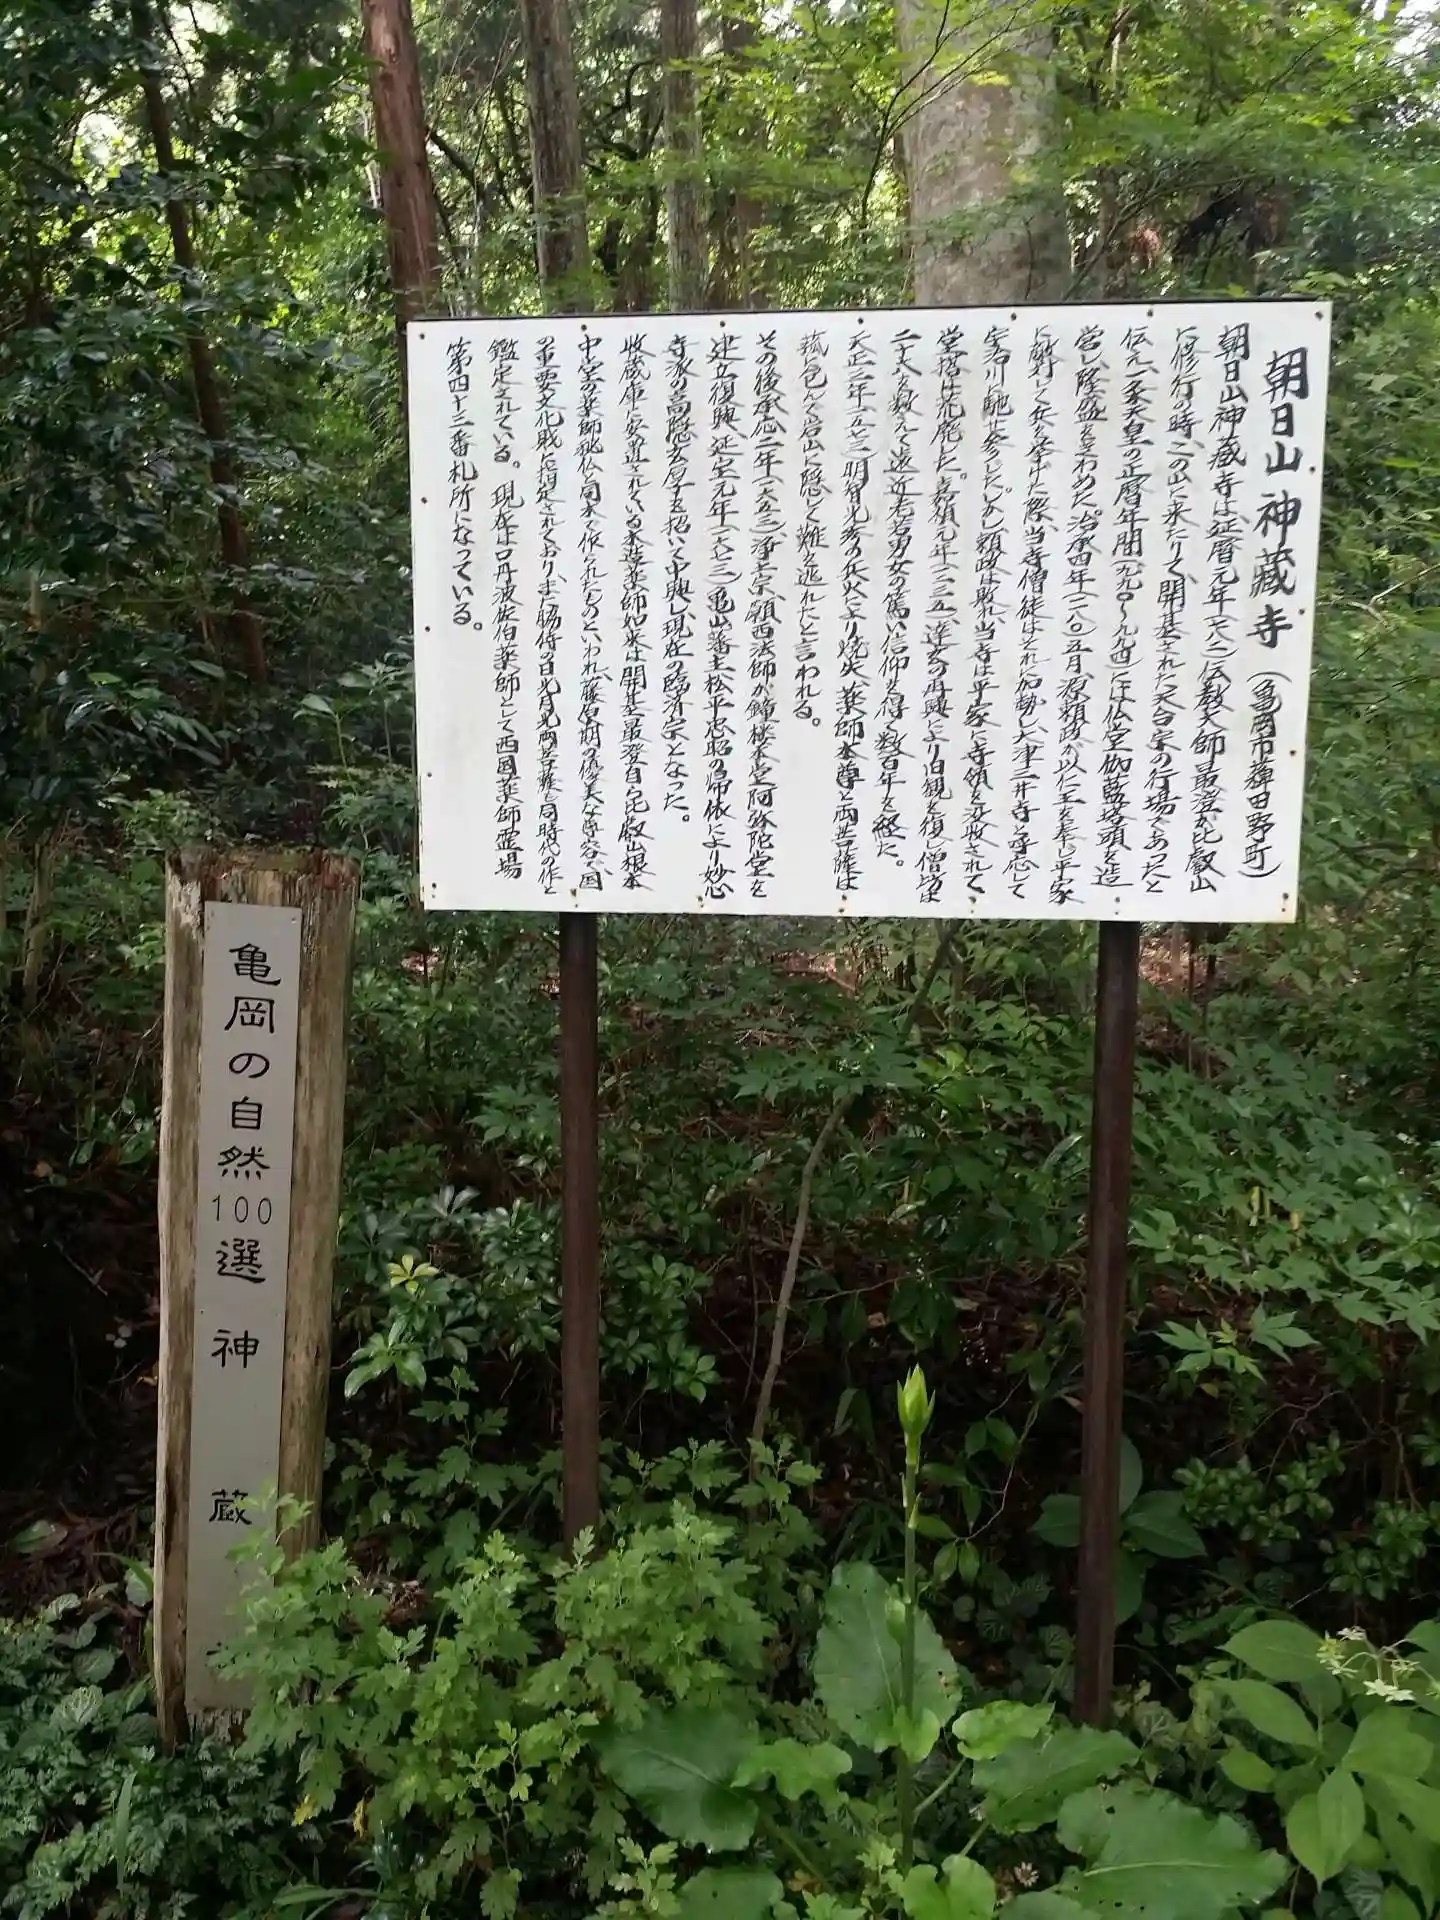 朝日山神蔵寺（亀岡市薭田野町）
朝日山神蔵寺は延暦元年（七八二）伝教大師最澄が比叡山
に修行の時、この山に来たりて、開基された天台宗の行場であったと
伝え、一条天皇の正暦年間（九九〇～九九四）には仏堂伽藍塔頭を造
営し隆盛をきわめた。治承四年（一一八〇）五月、源頼政が以仁王を奉じ平家
に叛して兵を挙げた際、当寺僧徒はそれに加勢し、大津三井寺と呼応して
宇治川に馳せ参じた。しかし頼政は敗れ、当寺は平家に寺領を没收されて
堂塔は荒廃した。嘉禎元年（一二三五）、達玄の再興により旧観を復し僧坊は
二十六を数えて遠近老若男女の篤い信仰を得、数百年を経た。
天正三年（一五七五）明智光秀の兵火により焼失、薬師本尊と両菩薩は
菰に包んで岩山に隠して難を逃れたと言われる。
その後承応二年（一六五三）浄土宗、願西法師が鐘楼本堂阿弥陀堂を
建立復興、延宝元年（一六七三）亀山藩主松平忠昭の帰依により妙心
寺派の高隠玄厚子を招いて中興し、現在の臨済宗となった。
收蔵庫に安置されている木造薬師如来は開基最澄自ら比叡山根本
中堂の薬師秘仏と同木で作られたものといわれ、藤原期の優美な尊容で国
の重要文化財に指定されており、また脇侍の日光月光両菩薩も同時代の作と
鑑定されている。現在は口丹波佐伯薬師として西国薬師霊場
第四十三番札所になっている。
亀岡の自然100選　神蔵